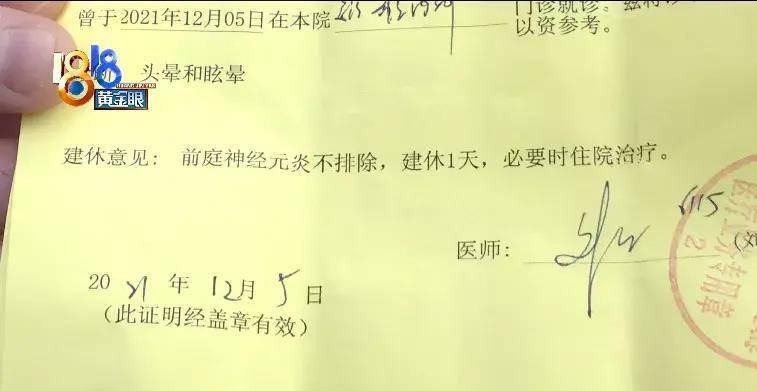 曾于2021年12月05日在本院 门诊就诊。兹特
以资参考。
1818
黄金眼
头晕和眩晕
建休意见：前庭神经元炎不排除，建休1天，必要时住院治疗。
医师：
2021年12月5日
（此证明经盖章有效）
专用章
2